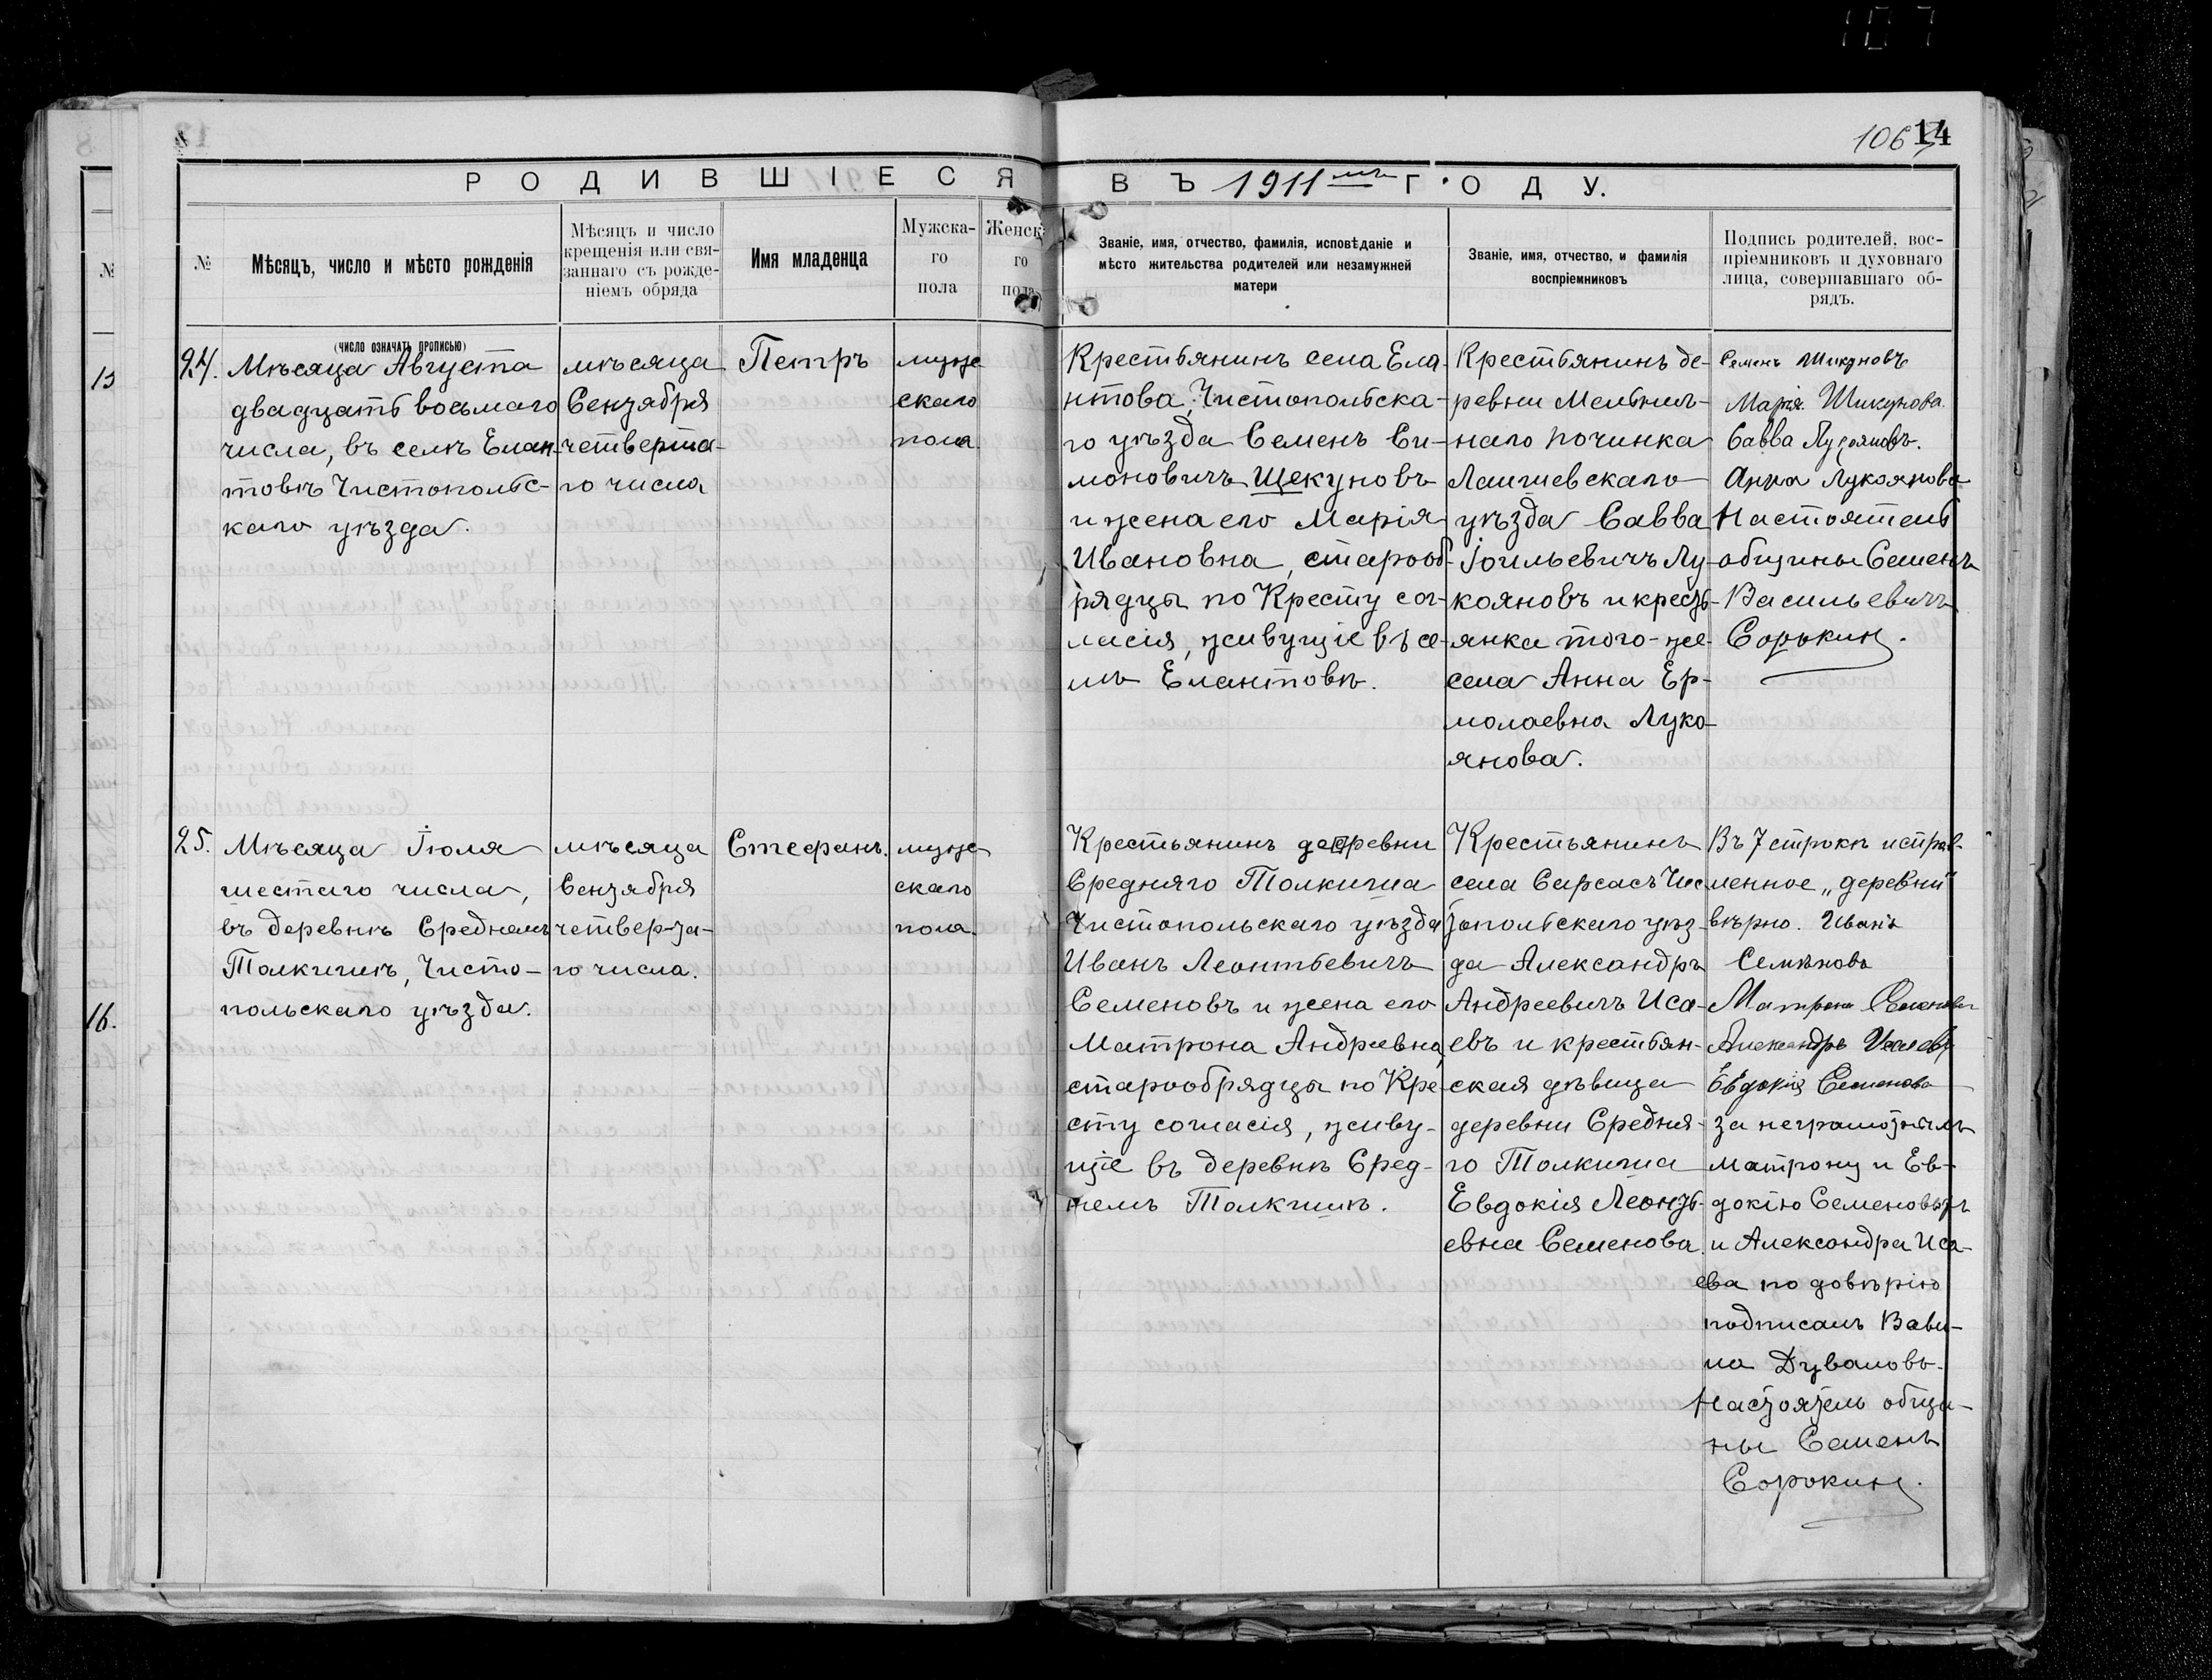 106 14
РОДИВШІЕСЯ ВЪ 1911мъ ГОДУ.
№
Мѣсяцъ, число и мѣсто рожденія
Мѣсяцъ и число
крещенія или свя-
заннаго съ рожде-
ніемъ обряда
Имя младенца
Мужска-
го
пола
Женск
го
пола
Званіе, имя, отчество, фамилія, исповѣданіе и
мѣсто жительства родителей или незамужней
матери
Званіе, имя, отчество, и фамилія
воспріемниковъ
Подпись родителей, вос-
пріемниковъ и духовнаго
лица, совершавшаго об-
рядъ.
(ЧИСЛО ОЗНАЧАТЬ ПРОПИСЬЮ)
24.
Мѣсяца Августа
двадцать восьмаго
числа, въ селѣ Елан-
товѣ Чистопольс-
каго уѣзда.
мѣсяца
Сентября
четверта-
го числа
Петръ
муже
скаго
пола.
Крестьянинъ села Ела-
нтова, Чистопольска-
го уѣзда Семенъ Си-
моновичъ Щекуновъ
и жена его Марія
Ивановна, старооб-
рядцы по Кресту сог-
ласія, живущіе въ се-
лѣ Елантовѣ.
Крестьянинъ де-
ревни Мельнич-
наго починка
Лаишевскаго
уѣзда Савва
Іоильевичъ Лу-
кояновъ и кресть-
янка того-же
села Анна Ер-
молаевна Луко-
янова.
Семенъ Шикуновъ
Марія Шикунова.
Савва Лукояновъ.
Анна Лукоянова
Настоятель
общины Семенъ
Васильевичъ
Сорокин.
25.
Мѣсяца Іюля
шестаго числа,
въ деревнѣ Среднемъ
Толкишѣ, Чисто-
польскаго уѣзда.
мѣсяца
Сентября
четверта-
го числа.
Стефанъ.
муже
скаго
пола.
Крестьянинъ деревни
Средняго Толкиша
Чистопольскаго уѣзда
Иванъ Леонтьевичъ
Семеновъ и жена его
Матрона Андреевна,
старообрядцы по Кре-
сту согласія, живу-
щіе въ деревнѣ Сред-
немъ Толкишѣ.
Крестьянинъ
села Сарсасъ Чис
топольскаго уѣз-
да Александръ
Андреевичъ Иса-
евъ и крестьян-
ская дѣвица
деревни Средня-
го Толкиша
Евдокія Леонть-
евна Семенова.
Въ 7 строкѣ исправ-
ленное „деревни"
вѣрно. Иванъ
Семѣновъ
Матрона Семенова
Александръ Исаевъ
Евдокія Семенова
за неграмотныхъ
Матрону и Ев-
докію Семеновыхъ
и Александра Иса-
ева по довѣрію
подписалъ Вави-
ла Дуваловъ.
Настоятель общи-
ны Семенъ
Сорокин.
№
15
16.